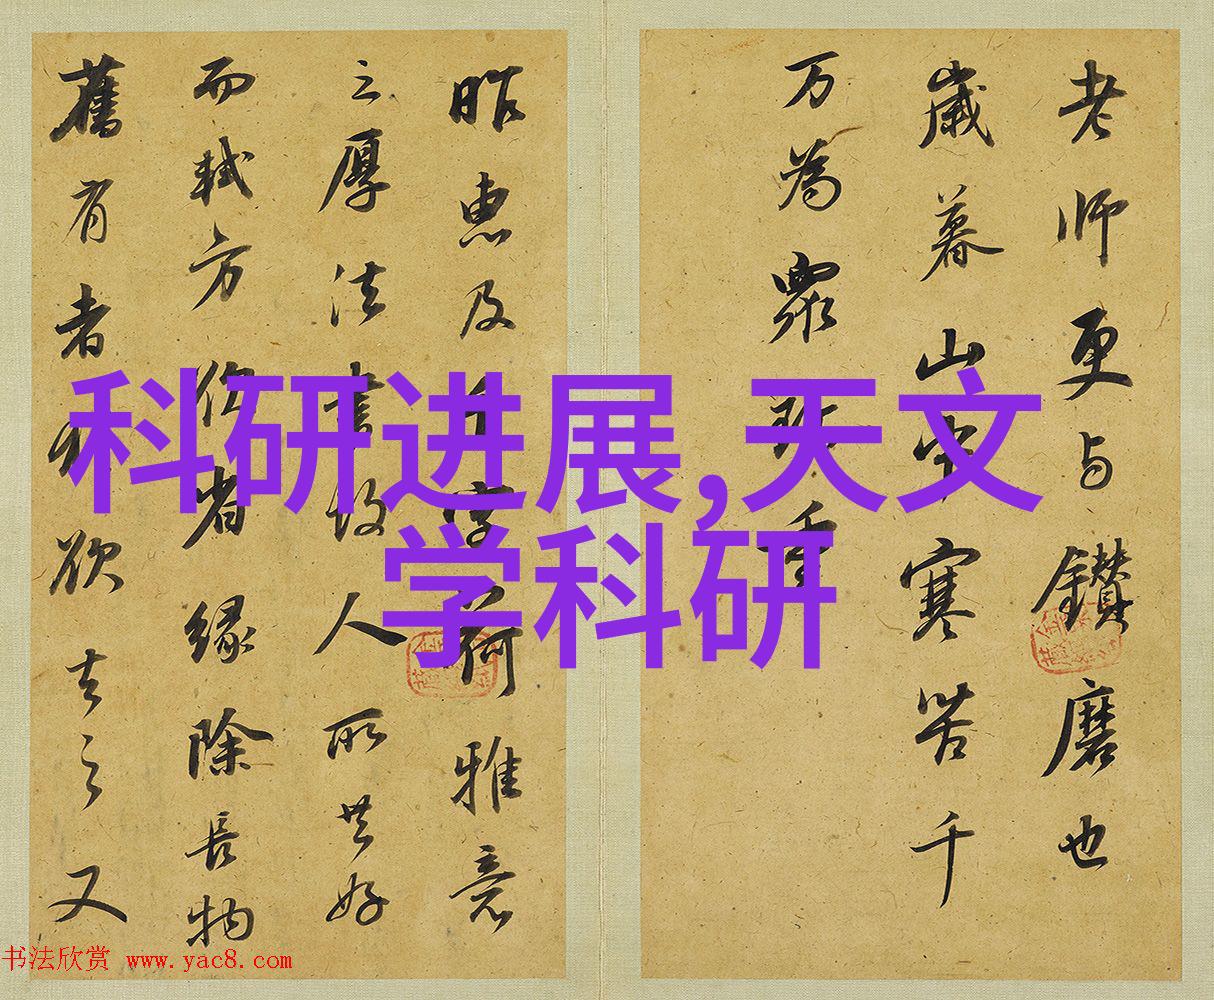 老师更与鑚磨也
歲暮山中寒苦千
万为眾珎重
昨惠及千字荷雅意
之厚法書故人所共好
而軾方作者緣除長物
舊有者欲去之又
科研进展,天文
学科研
书法欣赏 www.yac8.com